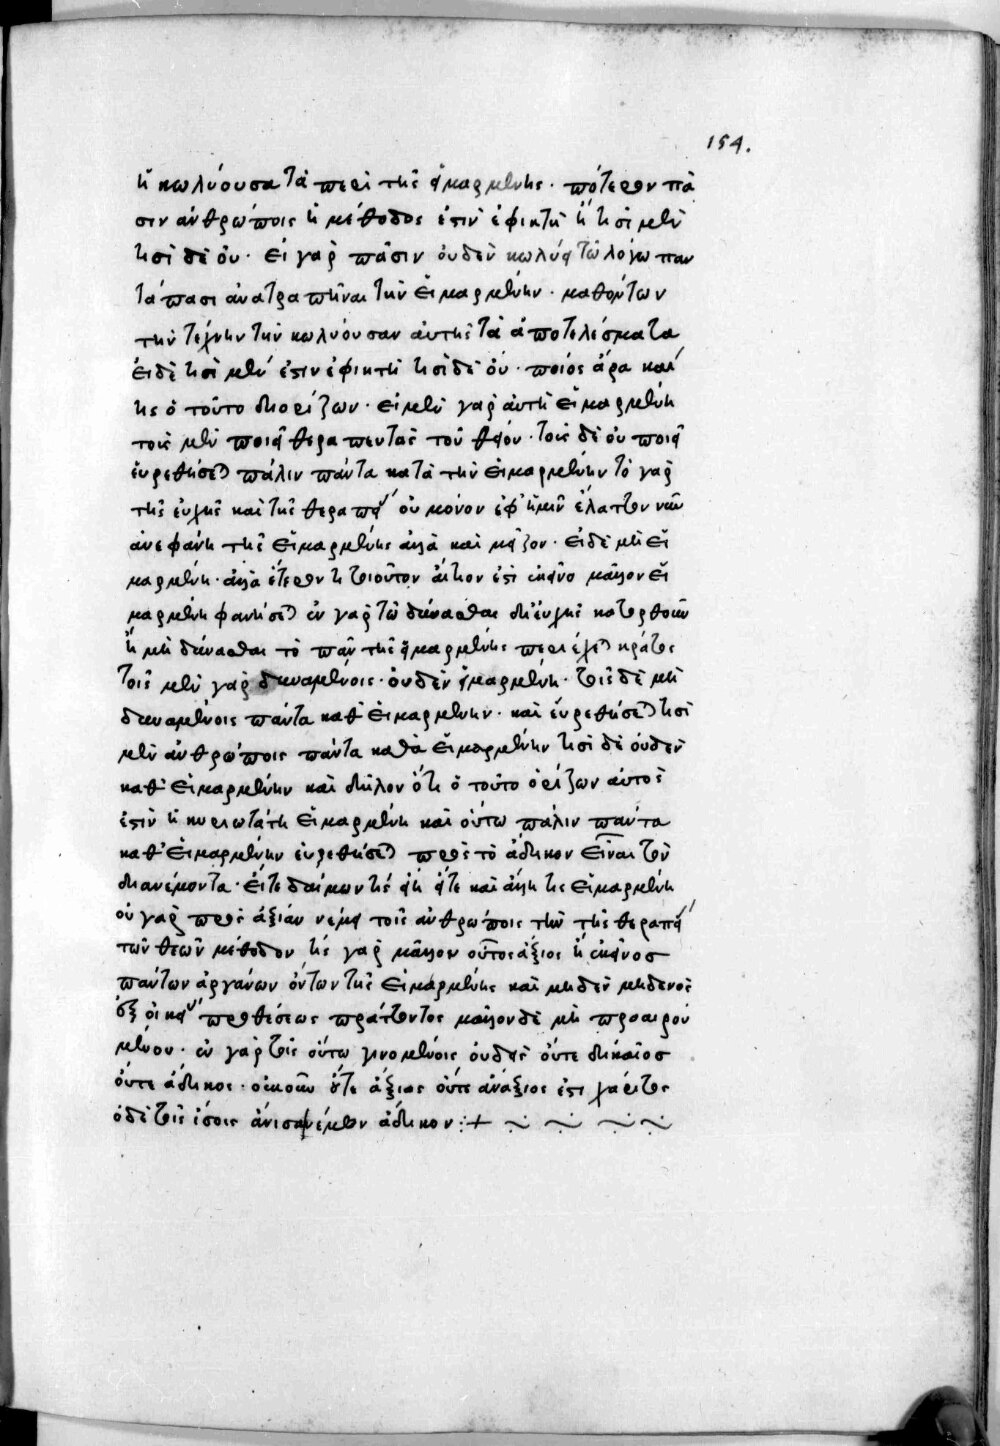 154.
ἢ κωλύουσα τὰ περὶ τῆς εἱμαρμένης· πότερον πᾶ
σιν ἀνθρώποις ἡ μέθοδος ἐστὶν ἐφικτὴ ἢ τισὶ μὲν
τισὶ δὲ οὐ· εἰ γὰρ πᾶσιν οὐδὲν κωλύει τῶ λόγω παν
τάπασι ἀνατραπῆναι τὴν εἱμαρμένην· μαθόντων
τὴν τέχνην τὴν κωλύουσαν αὐτῆς τὰ ἀποτελέσματα
εἰ δὲ τισὶ μέν ἐστιν ἐφικτὴ τισὶ δὲ οὐ· ποίοις ἄρα καί
τις ὁ τοῦτο διορίζων· εἰ μὲν γὰρ αὐτὴ εἱμαρμένη
τοὺς μὲν ποιεῖ θεραπευτὰς τοῦ θείου· τοὺς δὲ οὐ ποιεῖ
εὑρεθήσεται πάλιν πάντα κατὰ τὴν εἱμαρμένην τὸ γὰρ
τῆς εὐχῆς καὶ τῆς θεραπείας οὐ μόνον ἐφ' ἡμῖν ἔλαττον νῦν
ἀνεφάνη τῆς εἱμαρμένης ἀλλὰ καὶ μεῖζον· εἰ δὲ μὴ εἱ
μαρμένη· ἀλλὰ ἕτερόν τι τοιοῦτον αἴτιον ἐστὶ ἐκεῖνο μᾶλλον εἱ
μαρμένη φανήσεται ἐν γὰρ τῶ δύνασθαι δι' εὐχῆς κατορθοῦν
ἢ μὴ δύνασθαι τὸ πᾶν τῆς εἱμαρμένης περιέχεται κράτος
τοῖς μὲν γὰρ δυναμένοις· οὐδὲν εἱμαρμένη· τοῖς δὲ μὴ
δυναμένοις πάντα καθ' εἱμαρμένην· καὶ εὑρεθήσεται τισὶ
μὲν ἀνθρώποις πάντα καθὰ εἱμαρμένην τισὶ δὲ οὐδὲν
καθ' εἱμαρμένην καὶ δῆλον ὅτι ὁ τοῦτο ὁρίζων αὐτός
ἐστὶν ἡ κυριωτάτη εἱμαρμένη καὶ οὕτω πάλιν πάντα
καθ' εἱμαρμένην εὑρεθήσεται πρὸς τὸ ἄδικον εἶναι τὸν
διανέμοντα· εἴτε δαίμων τίς εἴη εἴτε καὶ ἄλλη τις εἱμαρμένη
οὐ γὰρ πρὸς ἀξίαν νέμει τοῖς ἀνθρώποις τὴν τῆς θεραπείας
τῶν θεῶν μέθοδον τίς γὰρ μᾶλλον οὗτος ἄξιος ἢ ἐκεῖνος
πάντων ὀργάνων ὄντων τῆς εἱμαρμένης καὶ μηδὲν μηδενός
ἐξ οἰκείας προθέσεως πράττοντος μᾶλλον δὲ μὴ προαιρου
μένου· ἐν γὰρ τοῖς οὕτω γινομένοις οὐδεὶς οὔτε δίκαιος
οὔτε ἄδικος· οὐκοῦν οὔτε ἄξιος οὔτε ἀνάξιος ἐστὶ χάριτος
ὁ δὲ τοῖς ἴσοις ἄνισα νέμων ἄδικον :+ ~ ~ ~~